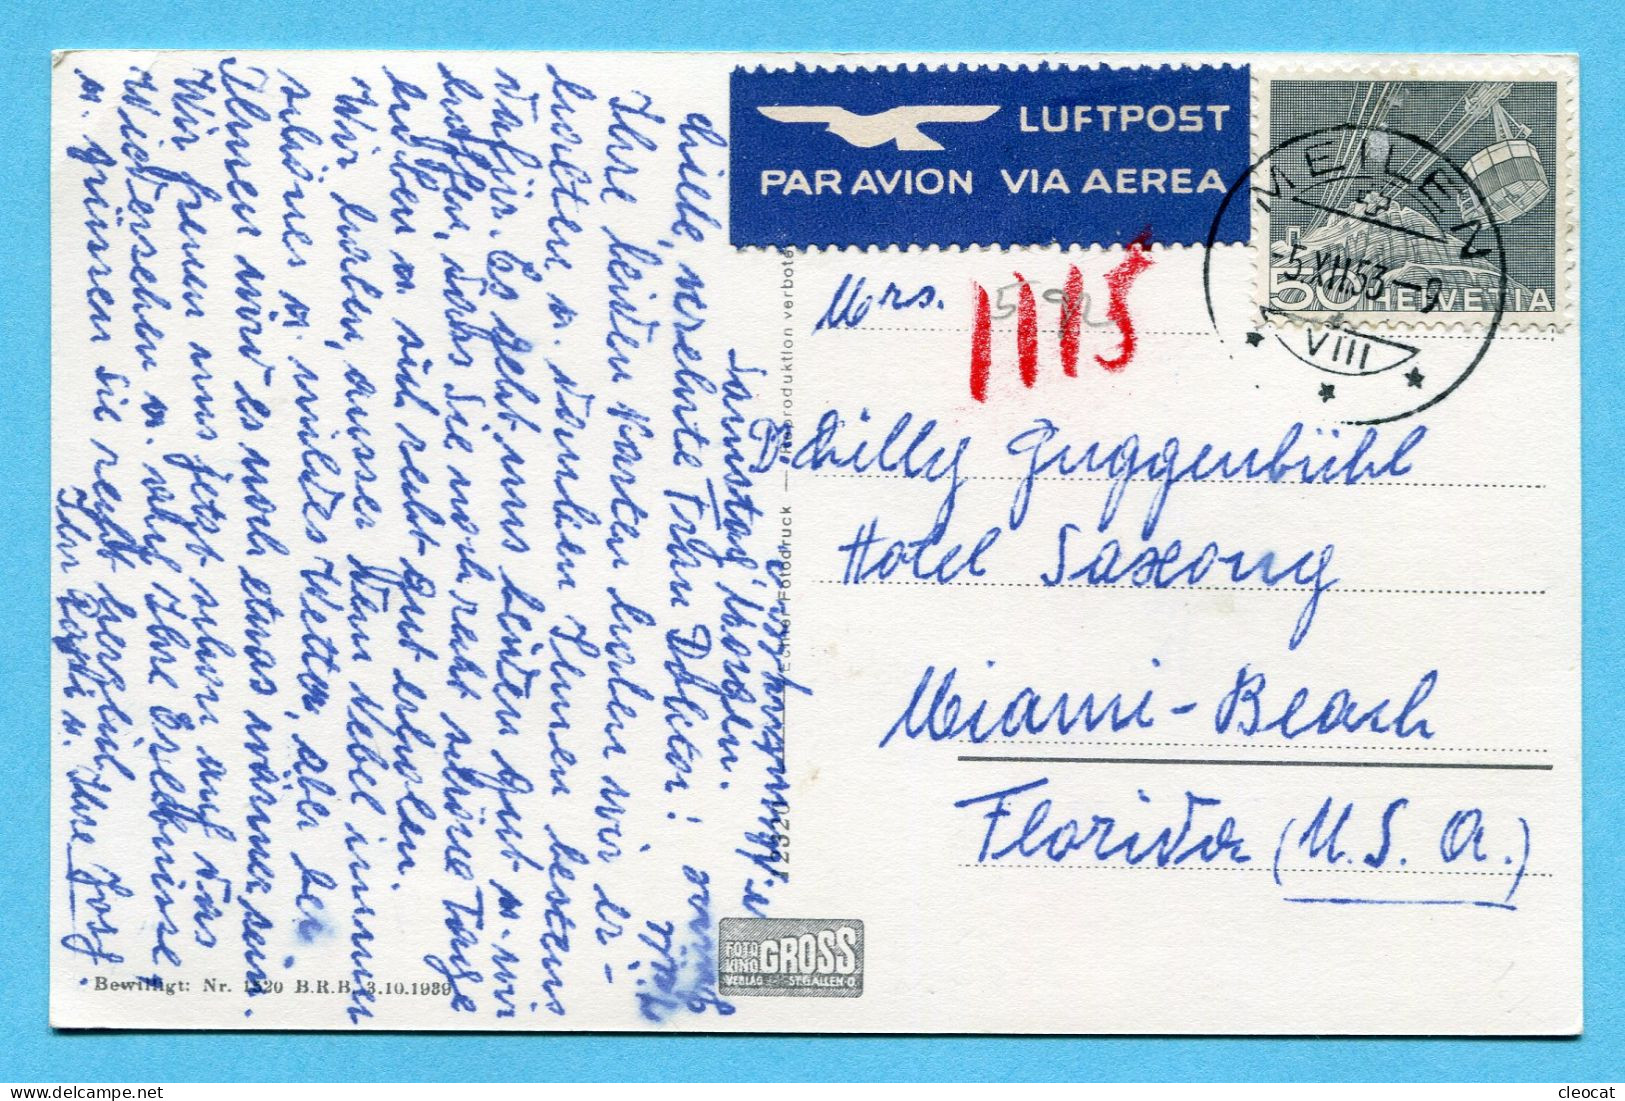 LUFTPOST
PAR AVION VIA AEREA
MEILEN
-5.XII.53-9
VIII
50 HELVETIA
Mrs.
1115
Dr. Lilly Guggenbühl
Hotel Saxony
Miami-Beach
Florida (U.S.A.)
Echter Fotodruck — Reproduktion verboten
12320
FOTO KINO GROSS
VERLAG ST. GALLEN-O.
Bewilligt: Nr. 1520 B.R.B. 3.10.1939
Samstag morgen.
Liebe, verehrte Frau Doktor!
Ihre beiden Karten haben wir er-
halten u. danken Ihnen bestens
dafür. Es geht uns beiden gut u. wir
hoffen, dass Sie noch recht schöne Tage
haben u. sich recht gut erholen.
Wir haben, ausser dem Nebel immer
schönes u. mildes Wetter, aber bei
Ihnen wird es noch etwas wärmer sein.
Wir freuen uns jetzt schon auf das
Wiedersehen u. auf Ihre Erlebnisse
u. grüssen Sie recht herzlich
Ihr u. Ihre
cleocat